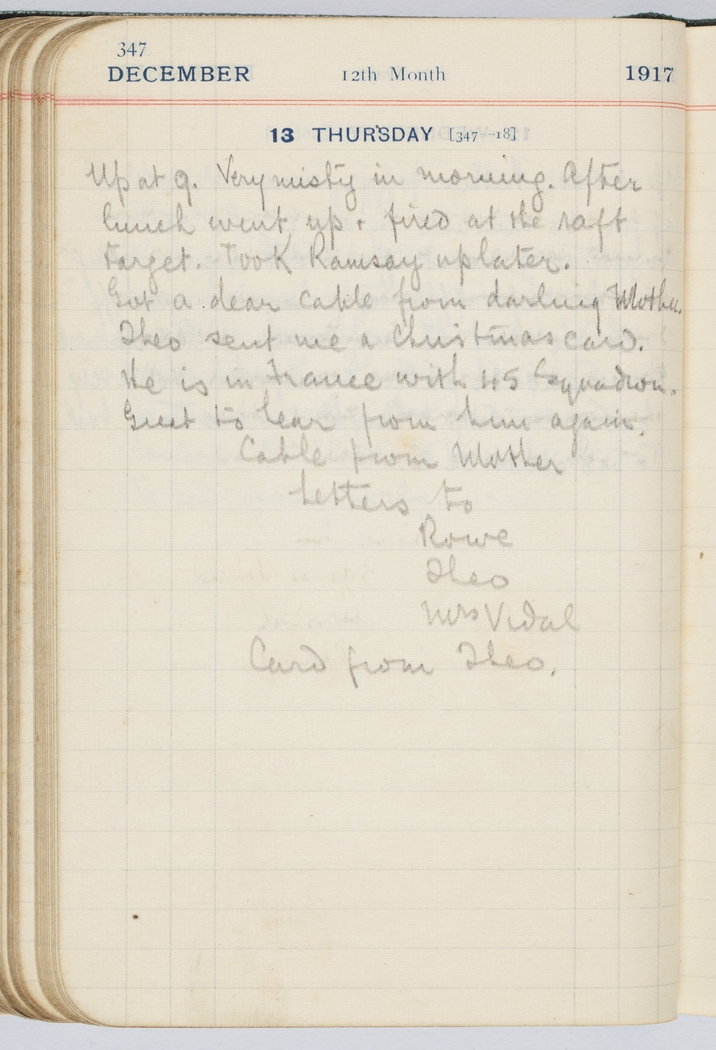 347
DECEMBER 12th Month 1917
13 THURSDAY [347—18]
Up at 9. Very misty in morning. After
lunch went up + fired at the raft
target. Took Ramsay up later.
Got a dear cable from darling Mother.
Theo sent me a Christmas card.
He is in France with 45 Squadron.
Great to hear from him again.
Cable from Mother
Letters to
Rowe
Theo
Mrs Vidal
Card from Theo.